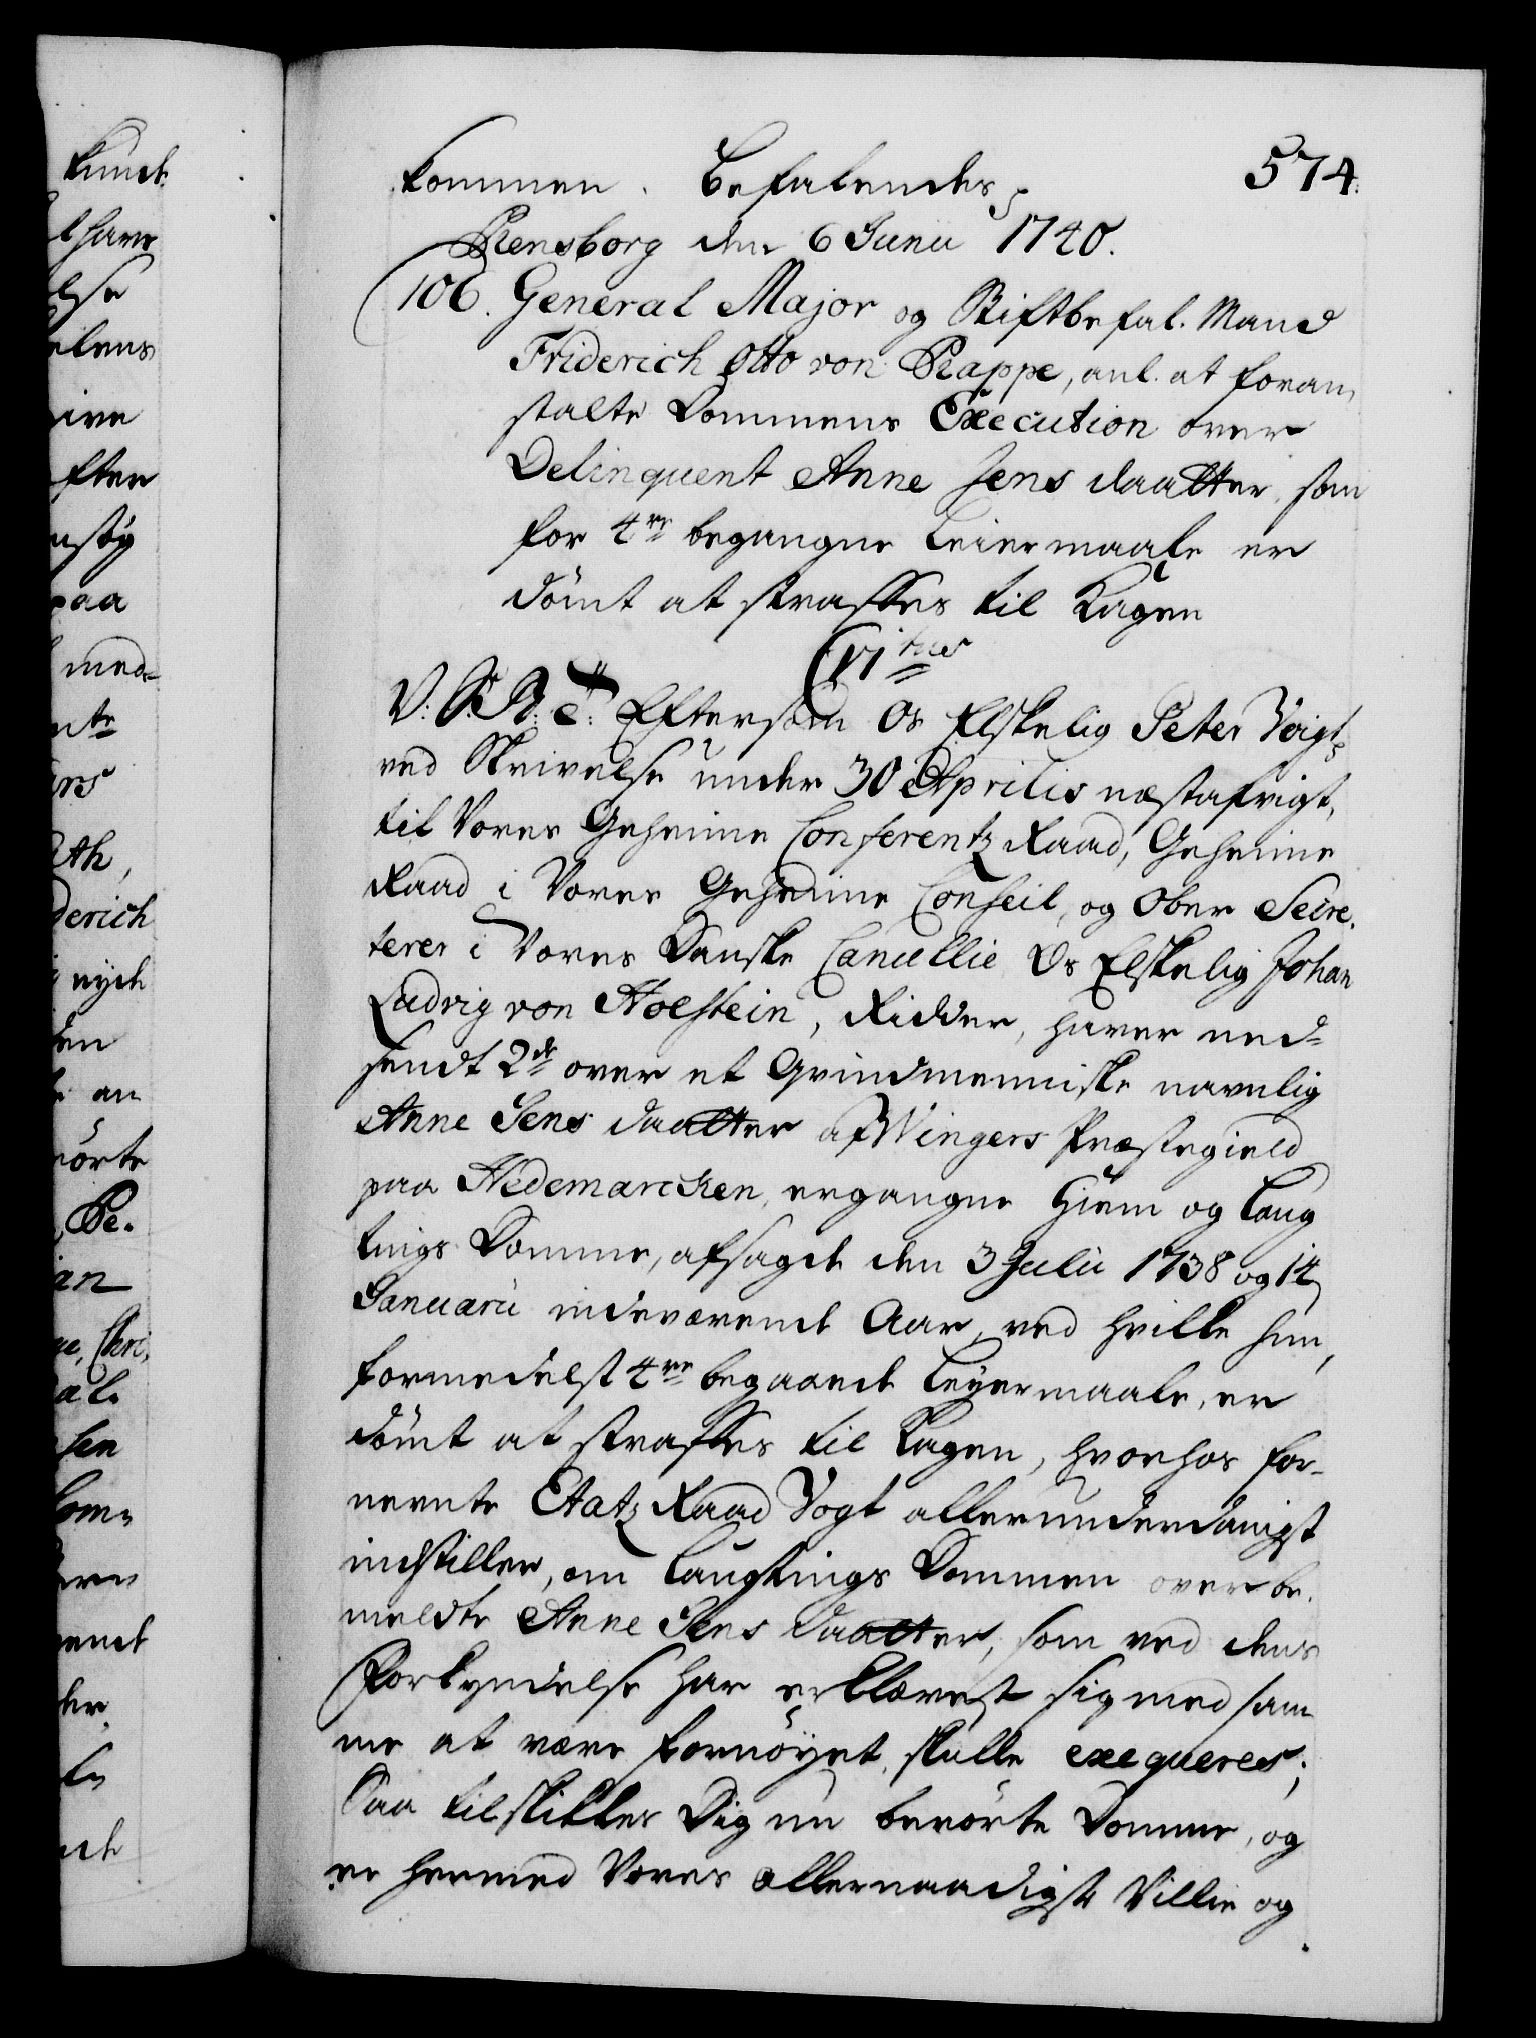 574.
kommen. Befalendes
Rensborg den 6 Junii 1740.
106. General Major og Stiftbefal. Mand
Friderich Otto von Rappe, anl. at foran,
stalte Dommens Execution over
Delinquent Anne Jens daatter, som
for 4re begangne Leiermaale er
dömt at straffes til Kagen
C. VI tus
V: G: A: T: Eftersom Os Elskelig Peter Voigt,
ved Skrivelse under 30 Aprilis næstafvigt,
til Vores Geheime Conferentz Raad, Geheime
Raad i Vores Geheime Conseil, og Ober Secre.
terer i Vores Danske Cancellie Os Elskelig Johan
Ludvig von Holstein, Ridder, haver ned-
sendt 2de over et Qvindmenniske navnlig
Anne Jens daatter af Wingers Præstegield
paa Hedemarcken, ergangne Hiem og Laug
tings Domme, afsagde den 3 Julii 1738 og 14
Januarii indeværende Aar, ved hvilke hun,
formedelst 4re begaaede Leyermaale, er
dömt at straffes til Kagen, hvorhos for-
nevnte Etatz Raad Vogt allerunderdanigst
indstiller, om Laugtings Dommen over be.
meldte Anne Jens daatter, som ved dens
Forkyndelse har erklæret sig med sam
me at være fornöyet, skulle exeqveres;
Saa tilskikkes Dig nu berörte Domme, og
er hermed Vores allernaadigste Villie og